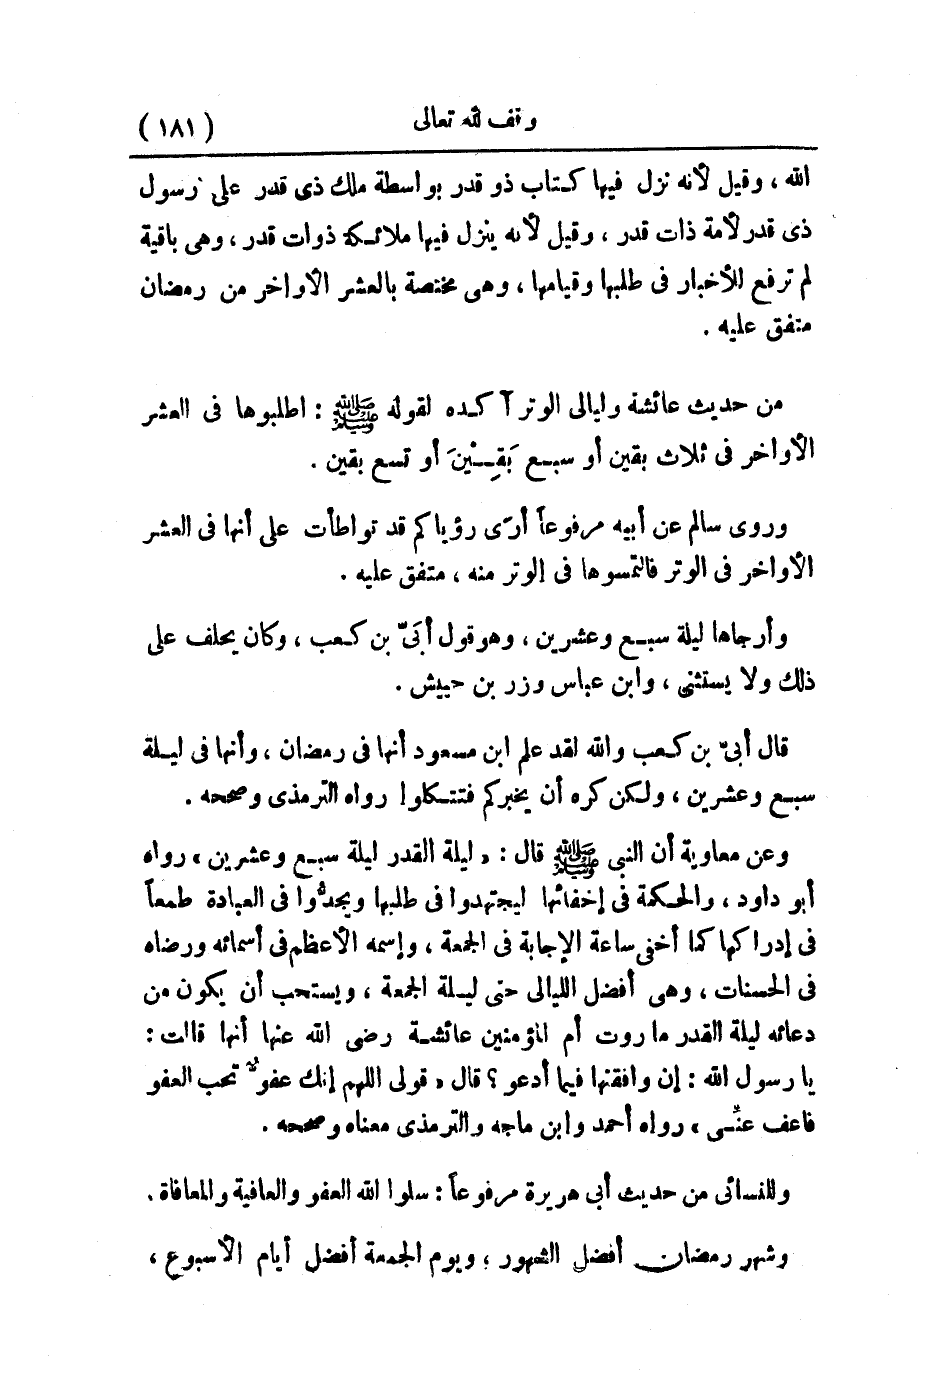 وقف لله تعالى (١٨١)
الله ، وقيل لأنه نزل فيها كتاب ذو قدر بواسطة ملك ذى قدر على رسول
ذى قدر لأمة ذات قدر ، وقيل لأنه ينزل فيها ملائكة ذوات قدر ، وهى باقية
لم ترفع للأخبار فى طلبها وقيامها ، وهى مختصة بالعشر الأواخر من رمضان
متفق عليه .
من حديث عائشة وليالى الوتر آكده لقوله ﷺ : اطلبوها فى العشر
الأواخر فى ثلاث بقين أو سبع بَقِـيْنَ أو تسع بقين .
وروى سالم عن أبيه مرفوعاً أرَى رؤياكم قد تواطأت على أنها فى العشر
الأواخر فى الوتر فالتمسوها فى الوتر منه ، متفق عليه .
وأرجاها ليلة سبع وعشرين ، وهو قول أبَىّ بن كعب ، وكان يحلف على
ذلك ولا يستثنى ، وابن عباس وزر بن حبيش .
قال أبىّ بن كعب والله لقد علم ابن مسعود أنها فى رمضان ، وأنها فى ليلة
سبع وعشرين ، ولكن كره أن يخبركم فتتكلوا رواه الترمذى وصححه .
وعن معاوية أن النبى ﷺ قال : « ليلة القدر ليلة سبع وعشرين » رواه
أبو داود ، والحكمة فى إخفائها ليجتهدوا فى طلبها ويجدُّوا فى العبادة طمعاً
فى إدراكها كما أخفى ساعة الإجابة فى الجمعة ، وإسمه الأعظم فى أسمائه ورضاه
فى الحسنات ، وهى أفضل الليالى حتى ليلة الجمعة ، ويستحب أن يكون من
دعائه ليلة القدر ما روت أم المؤمنين عائشة رضى الله عنها أنها قالت :
يا رسول الله : إن وافقتها فبما أدعو ؟ قال « قولى اللهم إنك عفوٌّ تحب العفو
فاعف عنِّى » رواه أحمد وابن ماجه والترمذى معناه وصححه .
وللنسائى من حديث أبى هريرة مرفوعاً : سلوا الله العفو والعافية والمعافاة .
وشهر رمضان أفضل الشهور ، ويوم الجمعة أفضل أيام الأسبوع ،